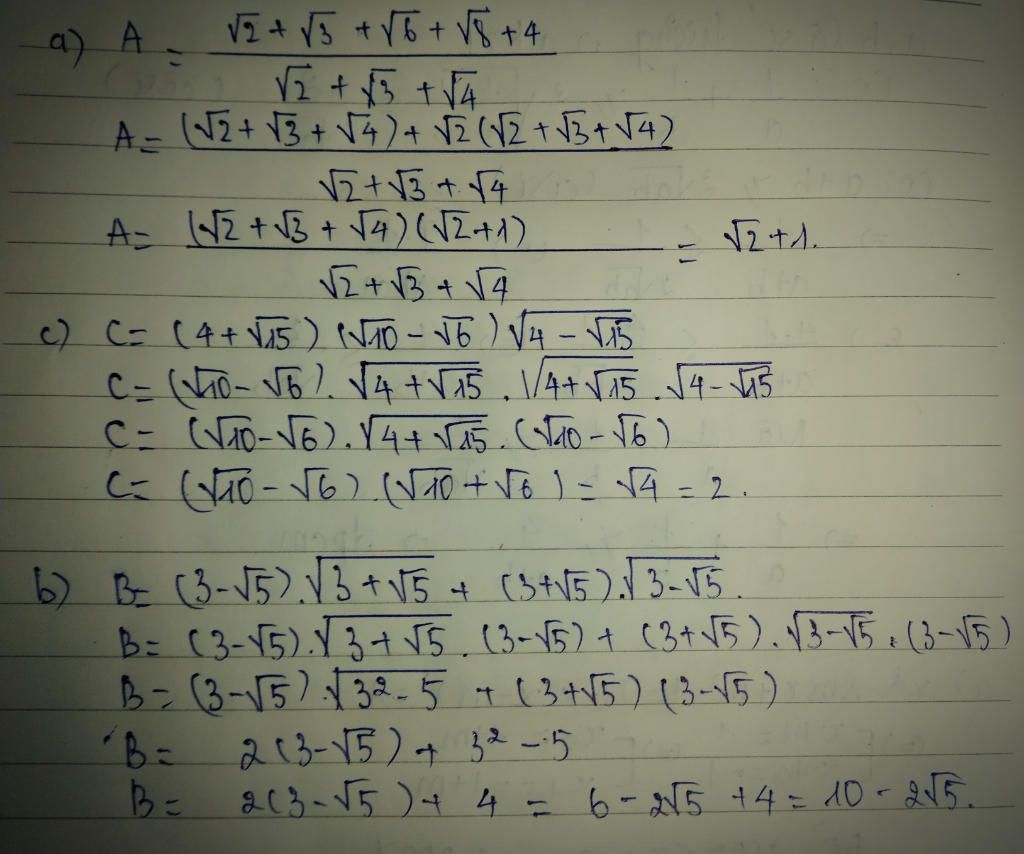 a) A = (√2 + √3 + √6 + √8 + 4) / (√2 + √3 + √4)
A = ((√2 + √3 + √4) + √2(√2 + √3 + √4)) / (√2 + √3 + √4)
A = ((√2 + √3 + √4)(√2 + 1)) / (√2 + √3 + √4) = √2 + 1.
c) C = (4 + √15)(√10 − √6)√(4 − √15)
C = (√10 − √6).√(4 + √15).√(4 + √15).√(4 − √15)
C = (√10 − √6).√(4 + √15).(√10 − √6)
C = (√10 − √6).(√10 + √6) = √4 = 2.
b) B = (3 − √5).√(3 + √5) + (3 + √5).√(3 − √5).
B = (3 − √5).√(3 + √5).(3 − √5) + (3 + √5).√(3 − √5).(3 − √5)
B = (3 − √5).√(3² − 5) + (3 + √5)(3 − √5)
B = 2(3 − √5) + 3² − 5
B = 2(3 − √5) + 4 = 6 − 2√5 + 4 = 10 − 2√5.